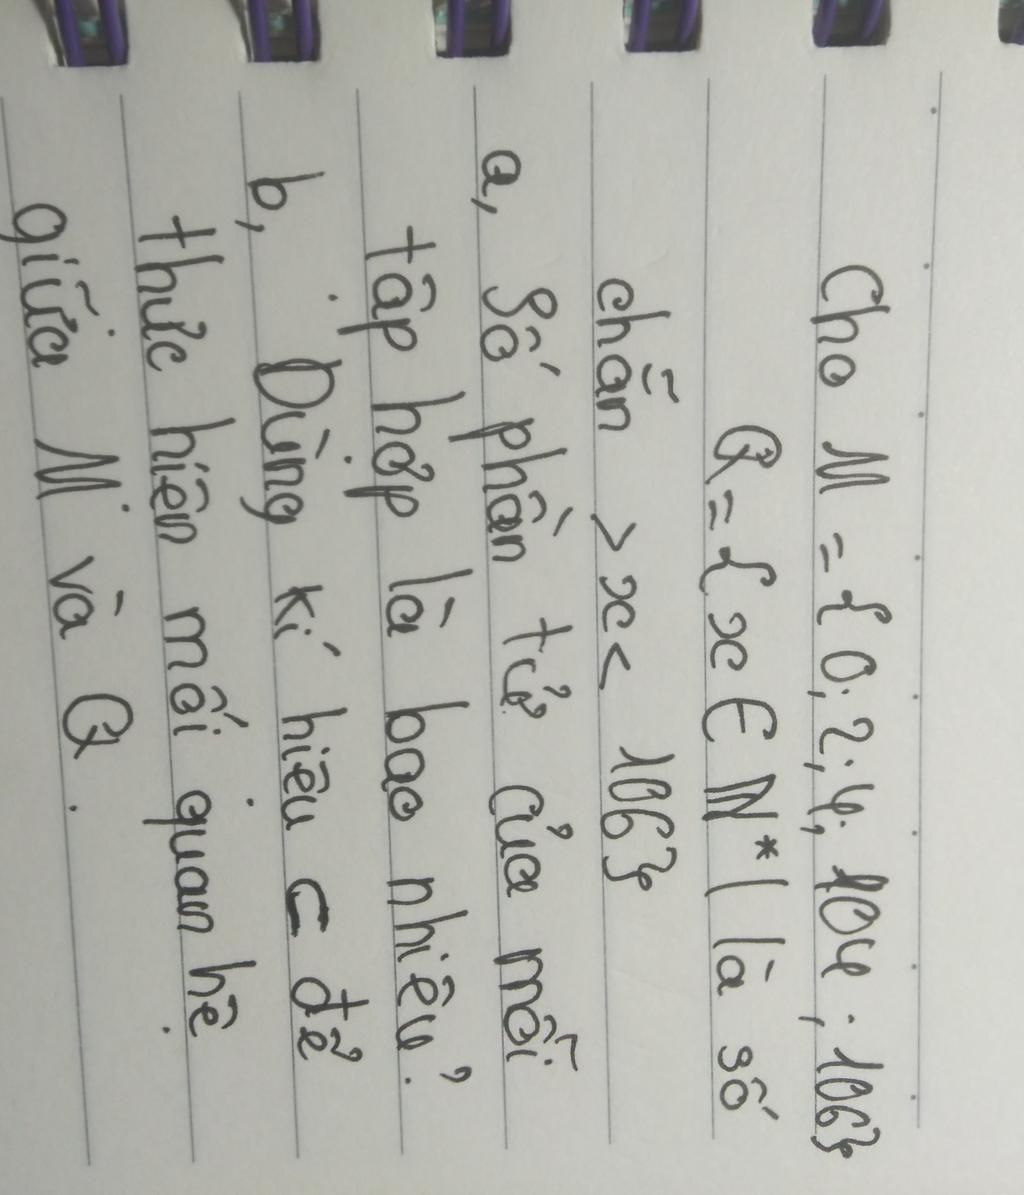 Cho M = {0; 2; 4; 104; 106}
Q = {x ∈ N* | là số
chẵn > x < 106}
a, Số phần tử của mỗi
tập hợp là bao nhiêu?
b, Dùng kí hiệu ⊂ để
thực hiện mối quan hệ
giữa M và Q.